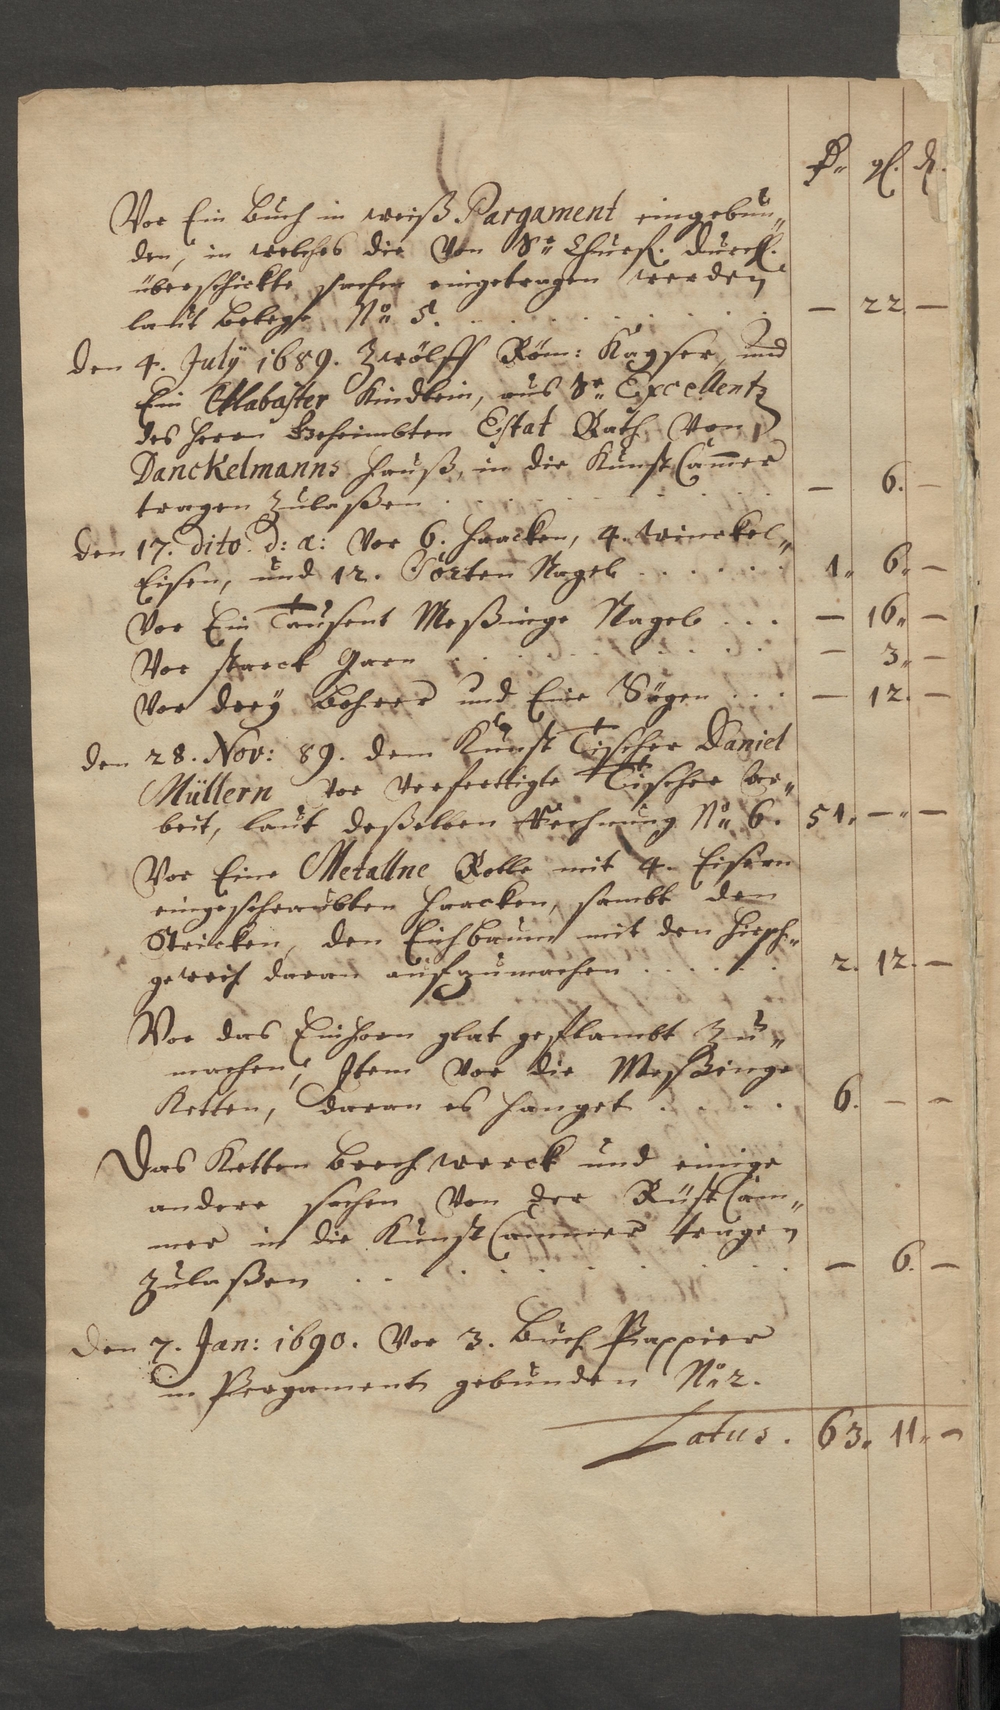 Rr. gl. ₰.
Vor Ein Buch in weiß Pargament eingebun„
den, in welches die von Sr. Churf. Durchl.
überschickte sachen eingetragen werden
laut Belege No. 5. . . . . . . . . — 22. —
den 4. July 1689. Zwölff Röm: Kayser, und
Ein Alabaster Kindlein, aus Sr. Excellentz
des Herrn Geheimbten Estat Rath von
Danckelmanns Hauß, in die KunstCam̄er
tragen zulaßen . . . . . . . . — 6. —
den 17. dito. d: a: Vor 6. Haacken, 4. winckel„
Eisen, und 12. Sorten Nagel . . . . . . 1. 6. —
Vor Ein Tausent Meßinge Nagel . . . — 16. —
Vor starck Garn . . . . . . . . — 3. —
Vor drey Bohrer und Eine Sägen . . . — 12. —
den 28. Nov: 89. dem Kunst Tischer Daniel
Müllern vor verfertigte Tischer Ar„
beit, laut deßelben Rechnung No. 6. 51. — —
Vor Eine Metallne Rolle mit 4. Eisern
eingeschraubten Haacken, sambt den
Stricken, den Eichbaum mit den Hirsch„
geweih daran aufzumachen . . . . . . 2. 12. —
Vor das Einhorn glat geflambt zu„
machen, Item vor die Meßinge
Ketten, daran es hanget . . . . . 6. — —
Das Ketten Bergwerck und einige
andere sachen von der RüstCam„
mer in die KunstCammer tragen
zulaßen . . . . . . . . . . — 6. —
den 7. Jan: 1690. Vor 3. Buch Pappier
in Pergament gebunden No. 2.
Latus. 63. 11. —